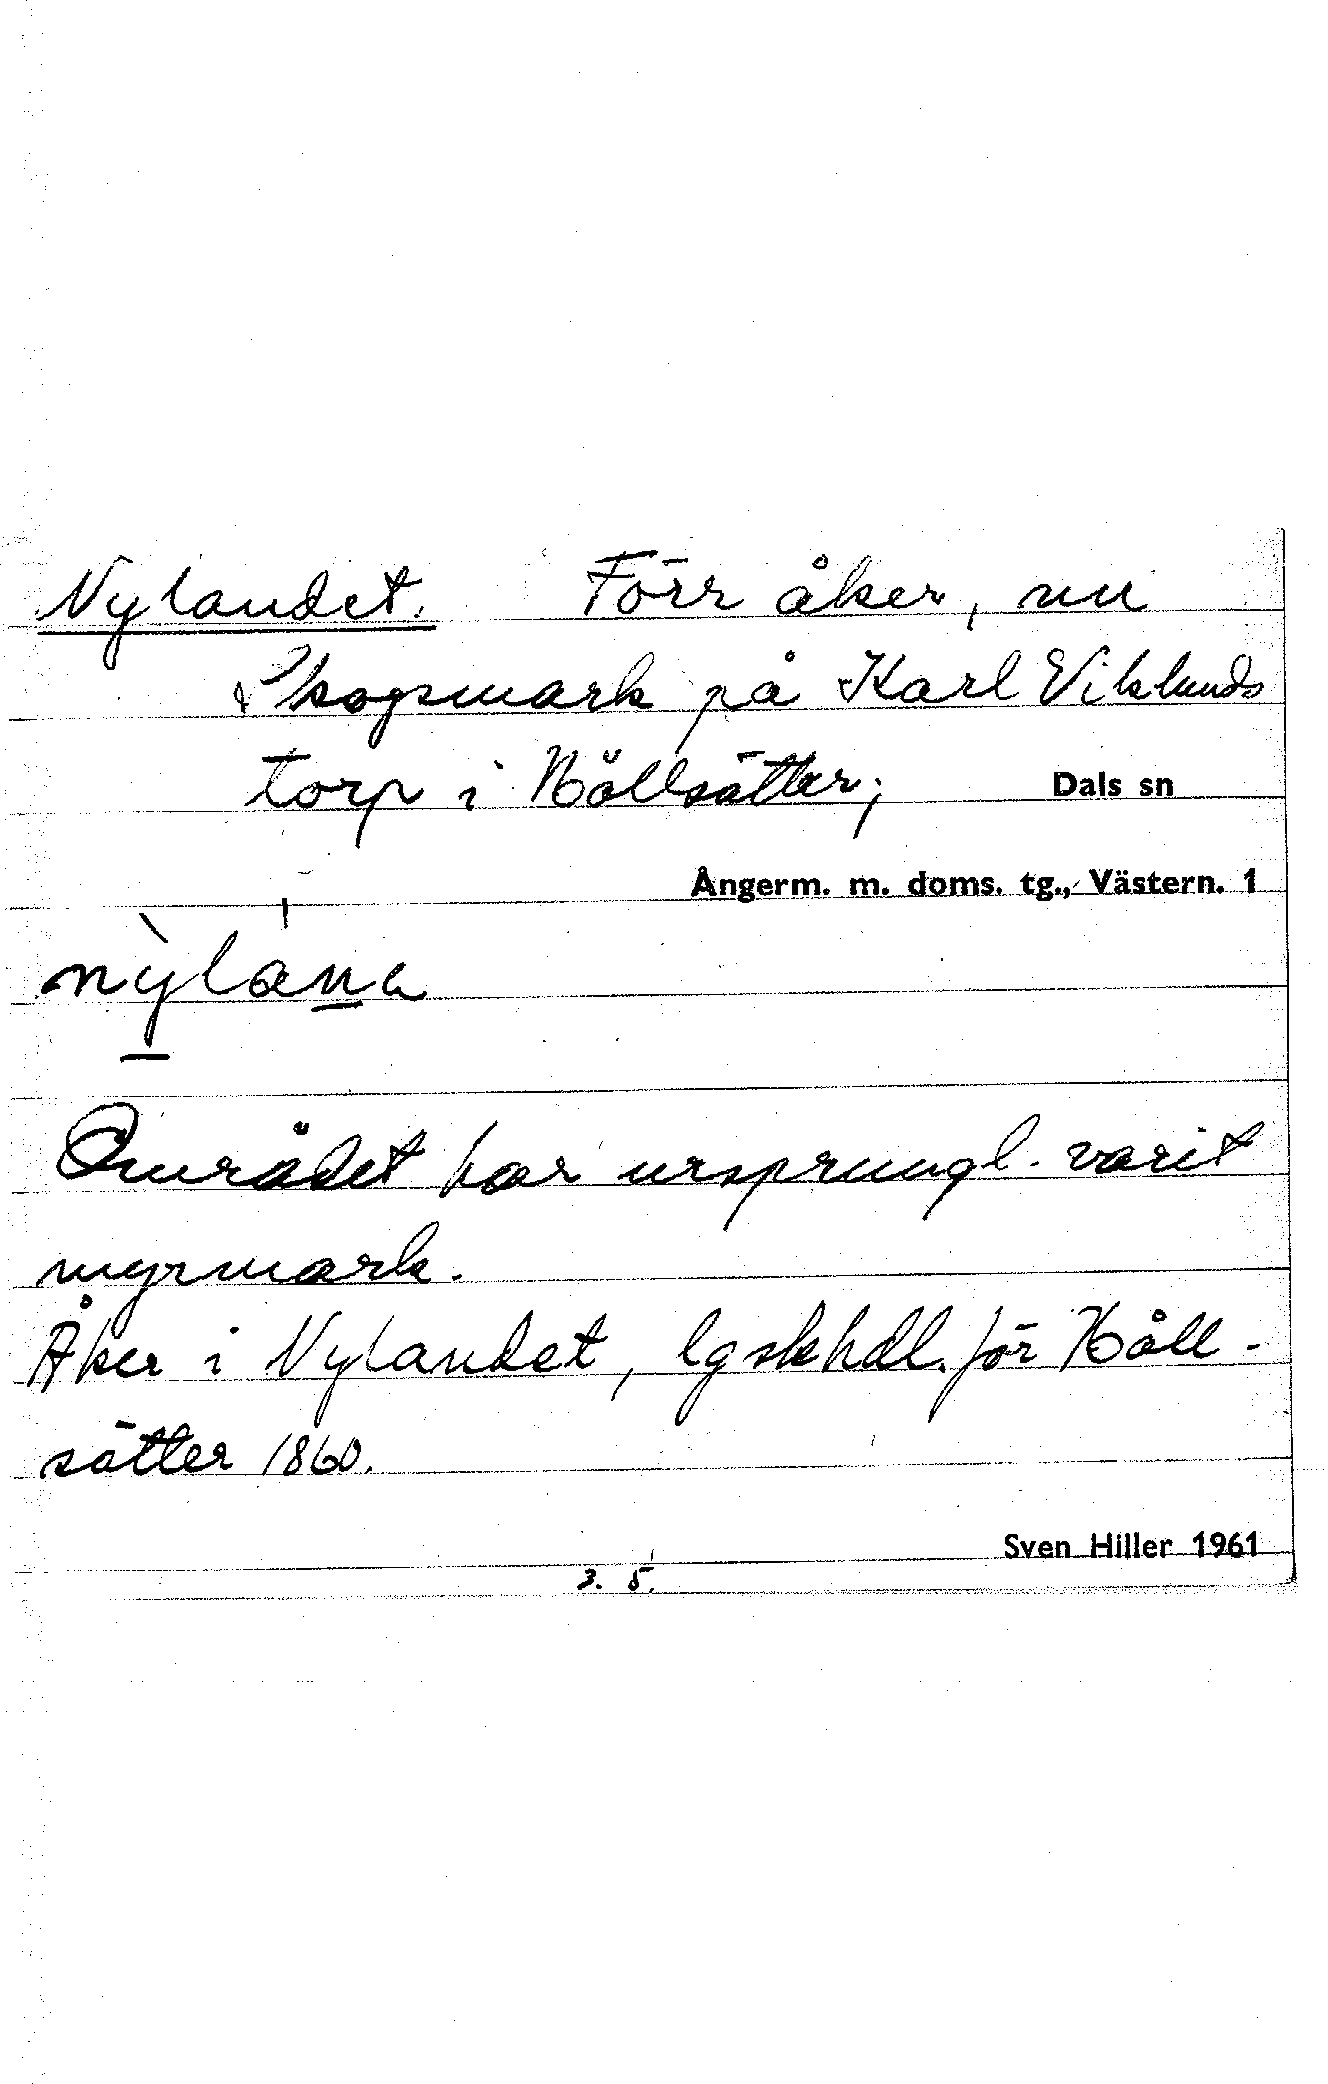 Nylandet. Förr åker, nu
Skogsmark på Karl Viklunds
torp i Hållsätter; Dals sn
Ångerm. m. doms. tg., Västern. 1
nỳlána
Området har ursprungl. varit
myrmark.
Åker i Nylandet, lgskhdl. för Håll-
sätter 1860.
Sven Hiller 1961
3. 5.